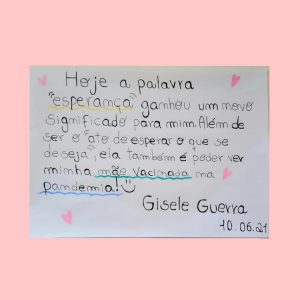 Hoje a palavra
"esperança" ganhou um novo
significado para mim. Além de
ser o "ato de esperar o que se
deseja", ela também é poder ver
minha mão vacinada na
pandemia! :)
Gisele Guerra
10.06.21